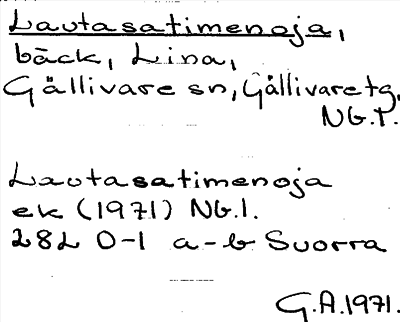 Lautasatimenoja,
bäck, Lina,
Gällivare sn, Gällivare tg,
Nb.l.
Lautasatimenoja
ek (1971) Nb.l.
28L 0-1 a-b Suorra
G.A.1971.